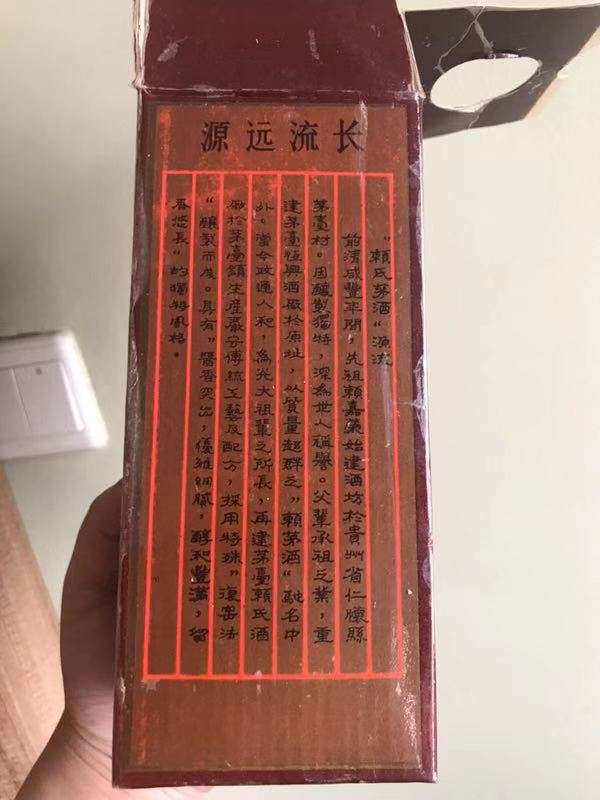 源远流长
"賴氏茅酒"源流
前清咸豐年間，先祖賴嘉廉始建酒坊於貴州省仁懷縣
茅臺村。因釀製獨特，深為世人稱譽。父輩承祖之業，重
建茅臺恆興酒廠於原址，以質量超群之"賴茅酒"馳名中
外。當今政通人和，為光大祖輩之所長，再建茅臺賴氏酒
廠於茅臺鎮生產嚴守傳統工藝及配方，採用特殊"復窖法
"釀製而成。具有"醬香突出，優雅細膩，醇和豐滿，留
香悠長"的獨特風格。